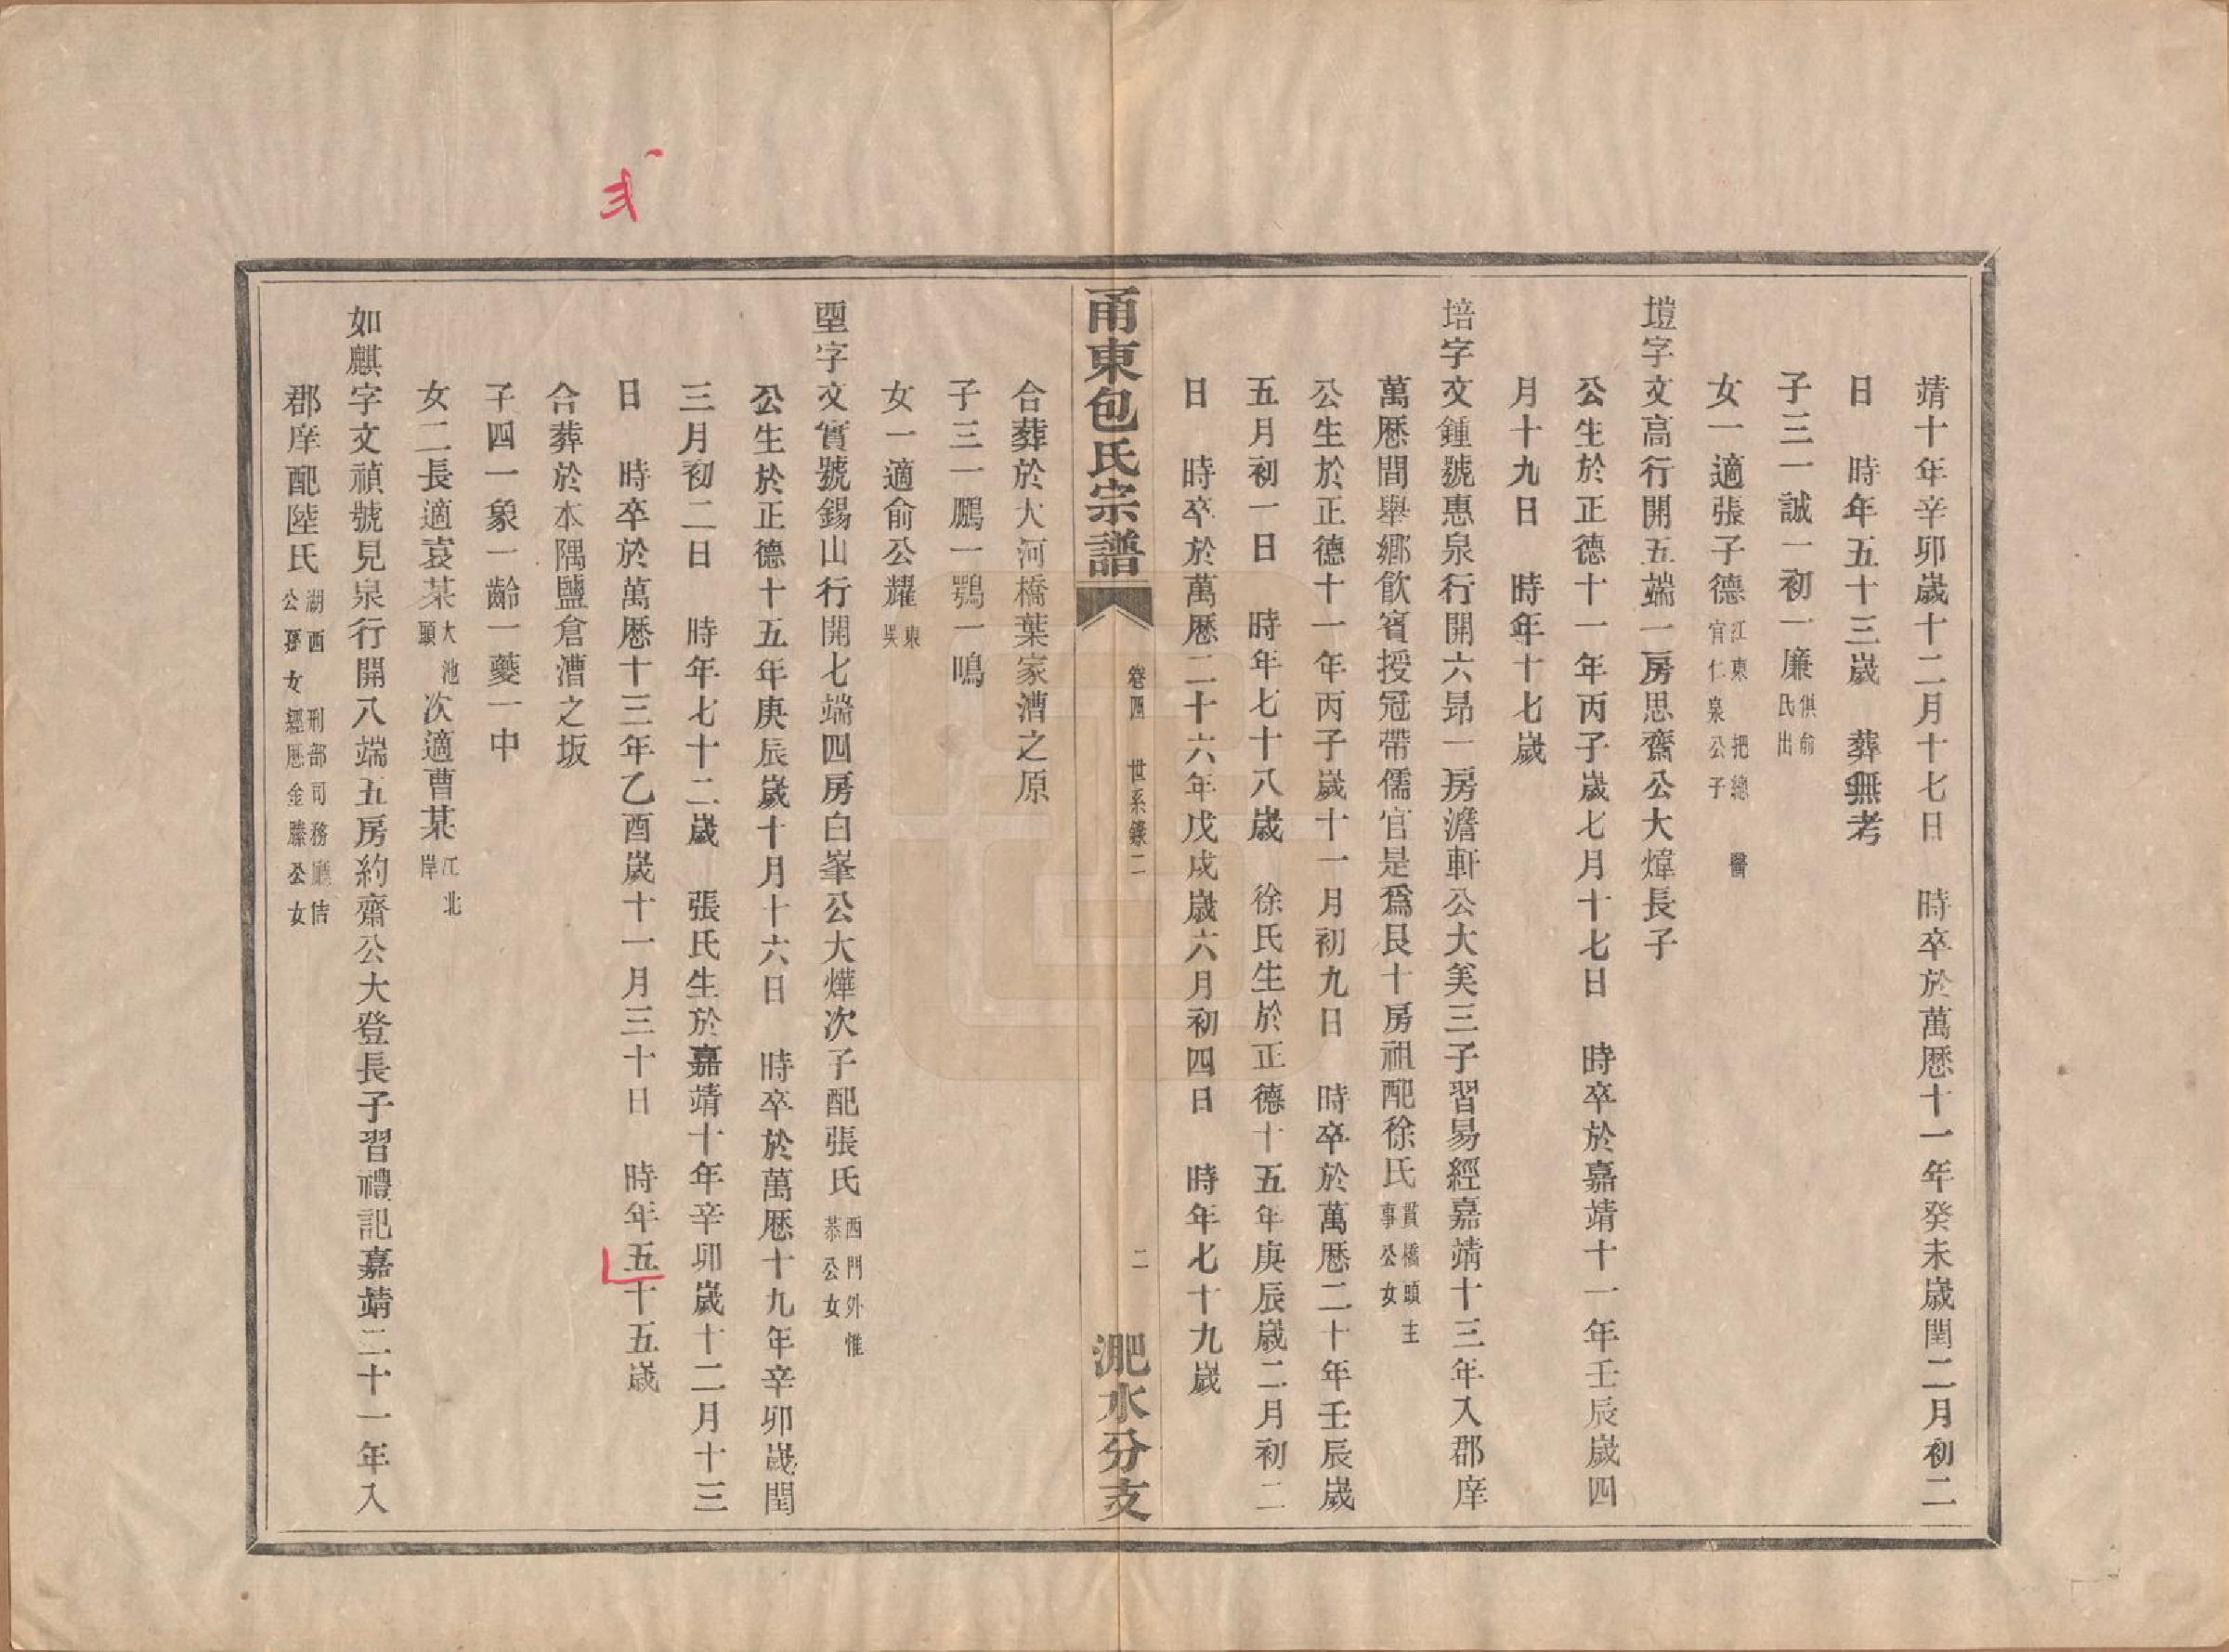 靖十年辛卯歲十二月十七日　時卒於萬曆十一年癸未歲閏二月初二
日　時年五十三歲　葬無考
子三一誠一初一廉俱俞氏出
女一適張子德江東　把總　醫官仁泉公子
塏字文高行開五端一房思齋公大煒長子
公生於正德十一年丙子歲七月十七日　時卒於嘉靖十一年壬辰歲四
月十九日　時年十七歲
培字文鍾號惠泉行開六昻一房澹軒公大美三子習易經嘉靖十三年入郡庠
萬曆間舉鄉飲賓授冠帶儒官是爲艮十房祖配徐氏貫橋頭主事公女
公生於正德十一年丙子歲十一月初九日　時卒於萬曆二十年壬辰歲
五月初一日　時年七十八歲　徐氏生於正德十五年庚辰歲二月初二
日　時卒於萬曆二十六年戊戌歲六月初四日　時年七十九歲
甬東包氏宗譜　卷四　世系錄二　二　淝水分支
合葬於大河橋葉家漕之原
子三一鵬一鶚一鳴
女一適俞公耀東吳
堊字文實號錫山行開七端四房白峯公大燁次子配張氏西門外惟恭公女
公生於正德十五年庚辰歲十月十六日　時卒於萬曆十九年辛卯歲閏
三月初二日　時年七十二歲　張氏生於嘉靖十年辛卯歲十二月十三
日　時卒於萬曆十三年乙酉歲十一月三十日　時年五十五歲
合葬於本隅鹽倉漕之坂
子四一象一齡一夔一中
女二長適袁某大池頭次適曹某江北岸
如麒字文禎號見泉行開八端五房約齋公大登長子習禮記嘉靖二十一年入
郡庠配陸氏湖西　刑部司務廳佶公孫女經歷金縢公女